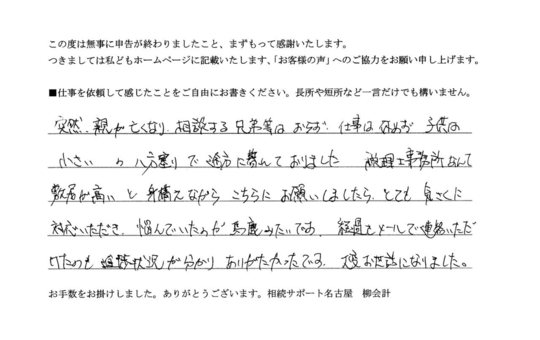 この度は無事に申告が終わりましたこと、まずもって感謝いたします。
つきましては私どもホームページに記載いたします、「お客様の声」へのご協力をお願い申し上げます。
■仕事を依頼して感じたことをご自由にお書きください。長所や短所など一言だけでも構いません。
突然、親が亡くなり、相談する兄弟等はおらず、仕事は休めず 子供は
小さい の八方塞りで途方に暮れておりました 税理士事務所なんて
敷居が高い と身構えながら こちらに お願いしましたら、とても 気さくに
対応いただき、悩んでいたのが馬鹿みたいです。経過もメールで連絡いただ
けたのも 進捗状況が分かり ありがたかったです。大変お世話になりました。
お手数をお掛けしました。ありがとうございます。相続サポート名古屋　柳会計